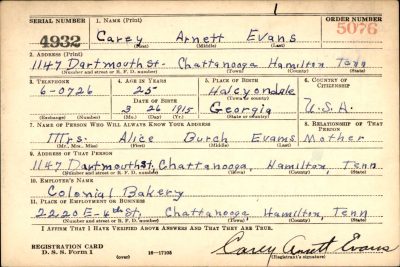 1
SERIAL NUMBER 1. NAME (Print) ORDER NUMBER
4932 Carey Arnett Evans 5076
(First) (Middle) (Last)
2. ADDRESS (Print)
1147 Dartmouth St. Chattanooga Hamilton Tenn
(Number and street or R. F. D. number) (Town) (County) (State)
3. TELEPHONE 4. AGE IN YEARS 5. PLACE OF BIRTH 6. COUNTRY OF CITIZENSHIP
6-0726 25 Halcyondale
DATE OF BIRTH (Town or county)
3 26 1915 Georgia U.S.A.
(Exchange) (Number) (Mo.) (Day) (Yr.) (State or country)
7. NAME OF PERSON WHO WILL ALWAYS KNOW YOUR ADDRESS 8. RELATIONSHIP OF THAT PERSON
Mrs. Alice Burch Evans Mother
(Mr., Mrs., Miss) (First) (Middle) (Last)
9. ADDRESS OF THAT PERSON
1147 Dartmouth St. Chattanooga, Hamilton, Tenn
(Number and street or R. F. D. number) (Town) (County) (State)
10. EMPLOYER'S NAME
Colonial Bakery
11. PLACE OF EMPLOYMENT OR BUSINESS
2220 E-4th St, Chattanooga, Hamilton, Tenn
(Number and street or R. F. D. number) (Town) (County) (State)
I AFFIRM THAT I HAVE VERIFIED ABOVE ANSWERS AND THAT THEY ARE TRUE.
REGISTRATION CARD
D. S. S. Form 1 (over) 16—17105 Carey Arnett Evans
(Registrant's signature)